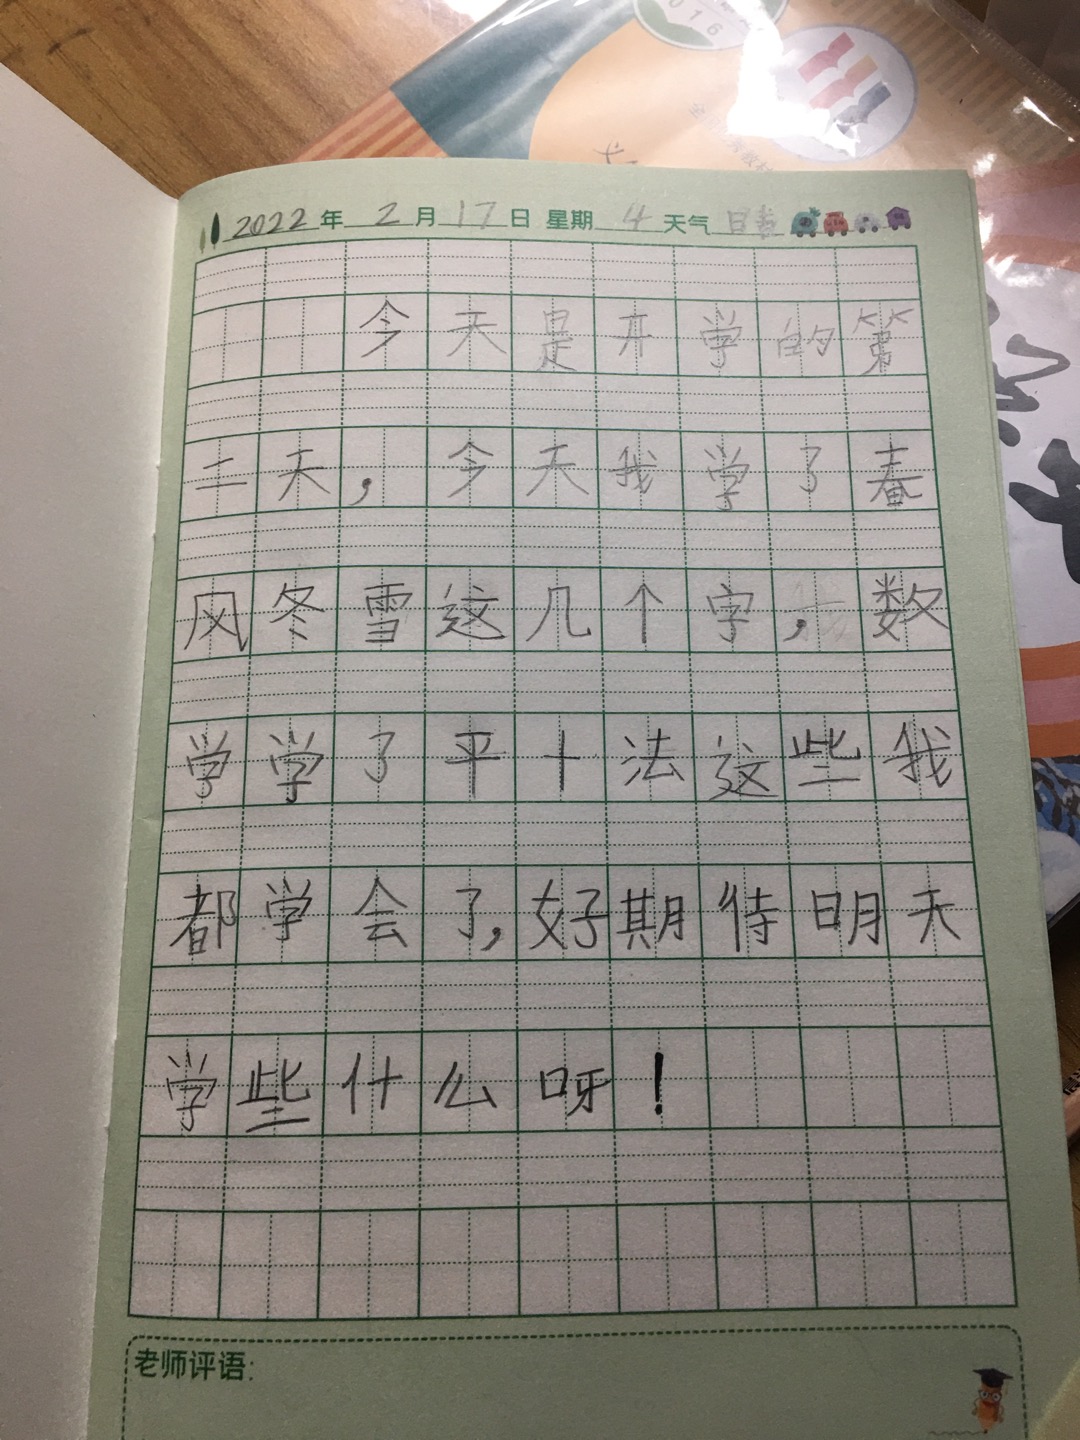 2018
2022年2月17日 星期4天气
今天是开学的第
二天,今天我学了春
风冬雪这几个字,数
学学了平十法这些我
都学会了,好期待明天
学些什么呀!
老师评语: